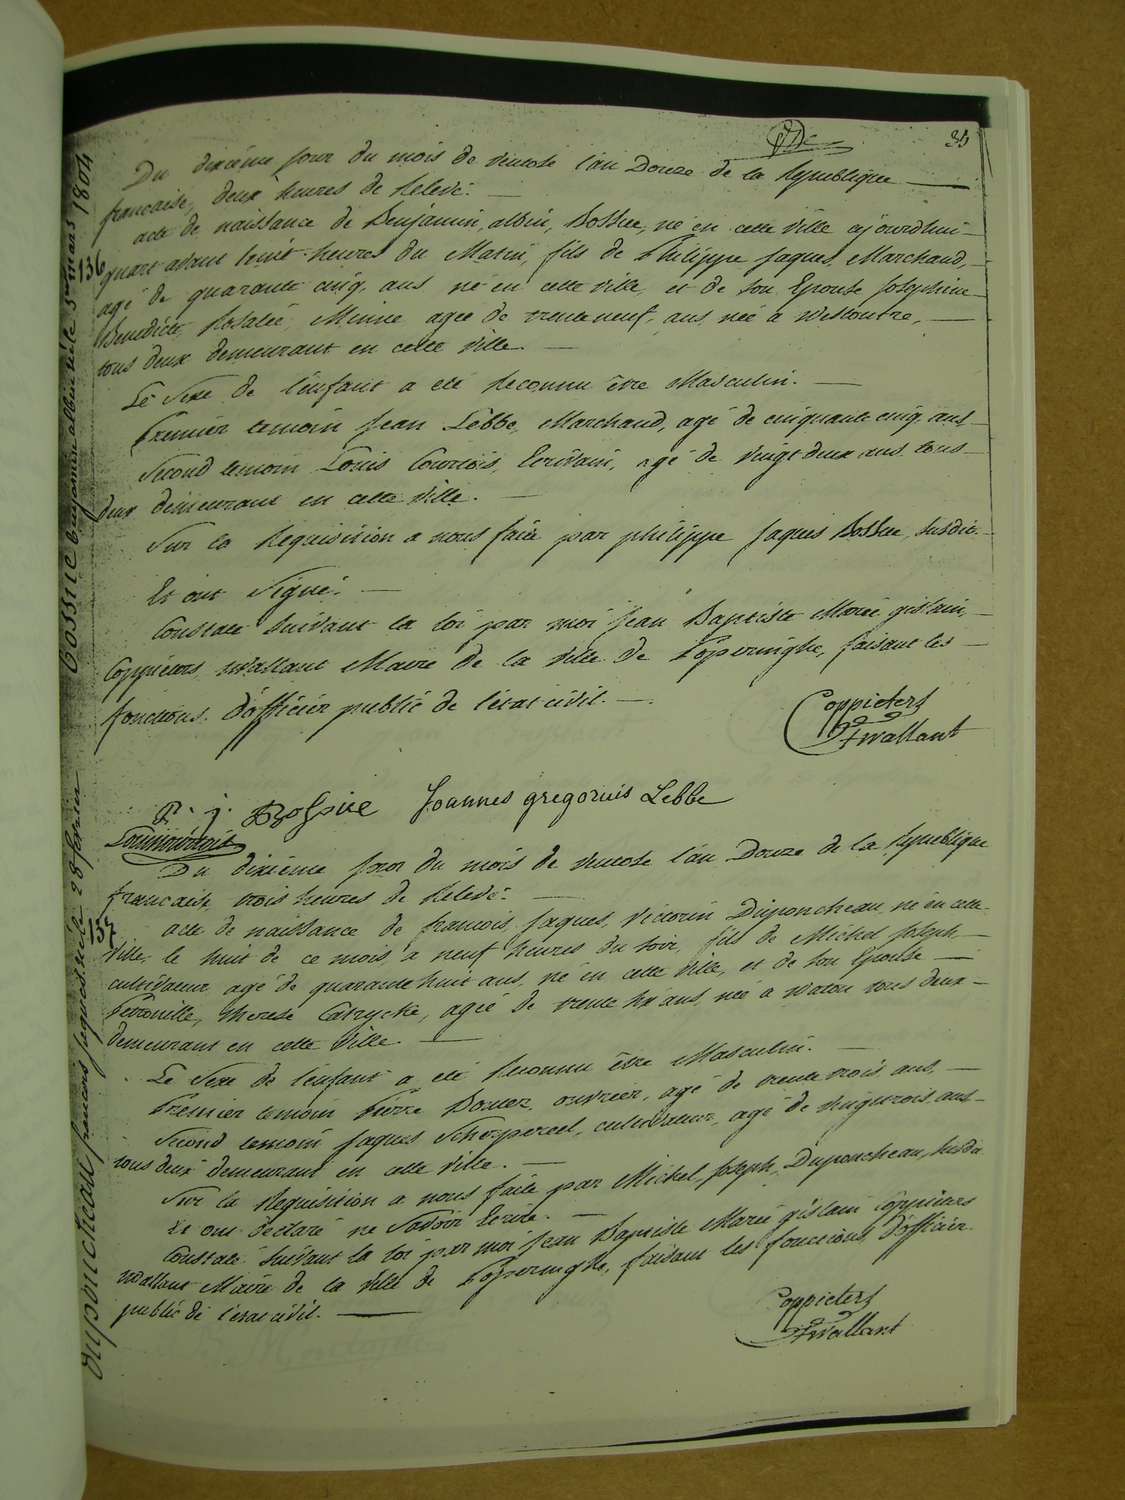 35
Du dixième jour du mois de ventose l'an Douze de la Republique
française, deux heures de Relevé.
acte de naissance de Benjamin, albin, Bossue, né en cette ville ajourdhui
136
quart avant huit heures du Matin, fils de Philippe Jaques, Marchand,
agé de quarante cinq, ans né en cette ville, et de son Epouse Josephine
Benedicte, Rosalie, Minne agée de trente neuf, ans, née a Westoutre,
tous deux demeurant en cette ville.
Le Sexe de l'enfant a eté Reconnu être Masculin.
Premier temoin Jean Lebbe, Marchand, agé de cinquante cinq, ans
Second temoin Louis Courtois, Ecrivain, agé de vingt deux ans, tous
deux demeurant en cette ville.
Sur la Requisition a nous faite par philippe Jaques Bossue, susdit.
Et ont Signé.
Constaté Suivant la loi par moi Jean Baptiste Marie gislain,
Coppieters, wallant Maire de la ville de Poperinghe, faisant les
fonctions d'officier public de l'état civil.
Coppieters
Twallant
P. j. Bossüe Joannes gregorius Lebbe
Bossue benjamin albin né le 1er mars 1804
Du dixième jour du mois de ventose l'an Douze de la Republique
française, trois heures de Relevé.
137
acte de naissance de francois, Jaques, Victorin Duponcheau, né en cette
ville, le huit de ce mois, a neuf heures du soir, fils de Michel Joseph
cultivateur agé de quarante huit ans, né en cette ville, et de son Epouse
Petronille, therese Catrycke, agée de trente six ans, née a watou tous deux
demeurant en cette ville.
Le Sexe de l'enfant a eté Reconnu être Masculin.
Premier temoin Pierre Bouer, ouvrier, agé de trente trois ans,
Second temoin Jaques Scherpereel, cultivateur, agé de vingt trois ans
tous deux demeurant en cette ville.
Sur la Requisition a nous faite par Michel, Joseph, Duponcheau, susdit
Et ont declaré ne Savoir Ecrire.
Constaté Suivant la loi par moi Jean Baptiste Marie gislain Coppieters
wallant Maire de la ville de Poperinghe, faisant les fonctions d'officier
public de l'état civil.
Coppieters
Twallant
duponcheau francois jaques né le 28 fevrier